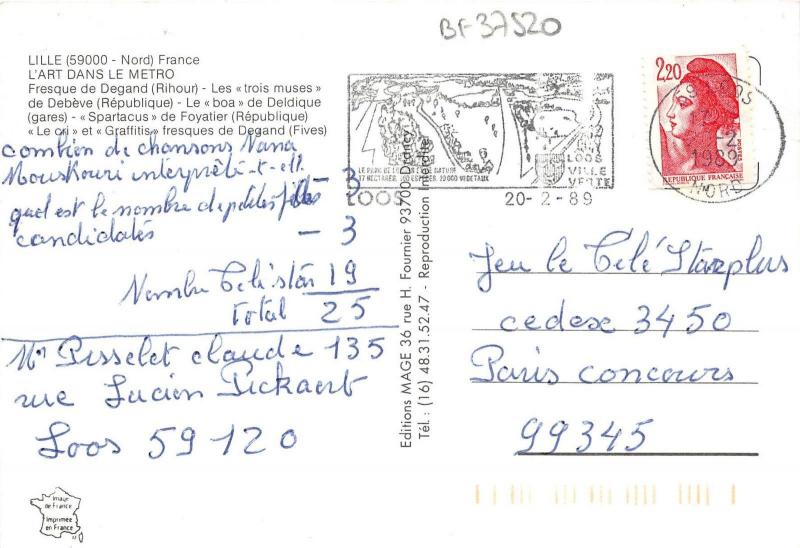 BF-37520
LILLE (59000 - Nord) France
L'ART DANS LE METRO
Fresque de Degand (Rihour) - Les « trois muses »
de Debève (République) - Le « boa » de Deldique
(gares) - « Spartacus » de Foyatier (République)
« Le cri » et « Graffitis » fresques de Degand (Fives)
combien de chansons Nana
Mouskouri interprète-t-ell - 3
quel est le nombre de petites filles
candidates - 3
Nombre Téléstar 19
Total 25
Mr Pisselet claude 135
rue Lucien Pickaert
Loos 59120
Image
de France
Imprimée
en France
Editions MAGE 36 rue H. Fournier 93700 Drancy
Tél. : (16) 48.31.52.47 - Reproduction Interdite
LE PARC DE LOISIRS ET DE NATURE
17 HECTARES, 100 ESPECES, 20 000 VEGETAUX
LOOS
VILLE
VERTE
LOOS
20-2-89
2,20
REPUBLIQUE FRANÇAISE
LOOS
1989
NORD
Jeu le Télé Starplus
cedex 3450
Paris concours
99345